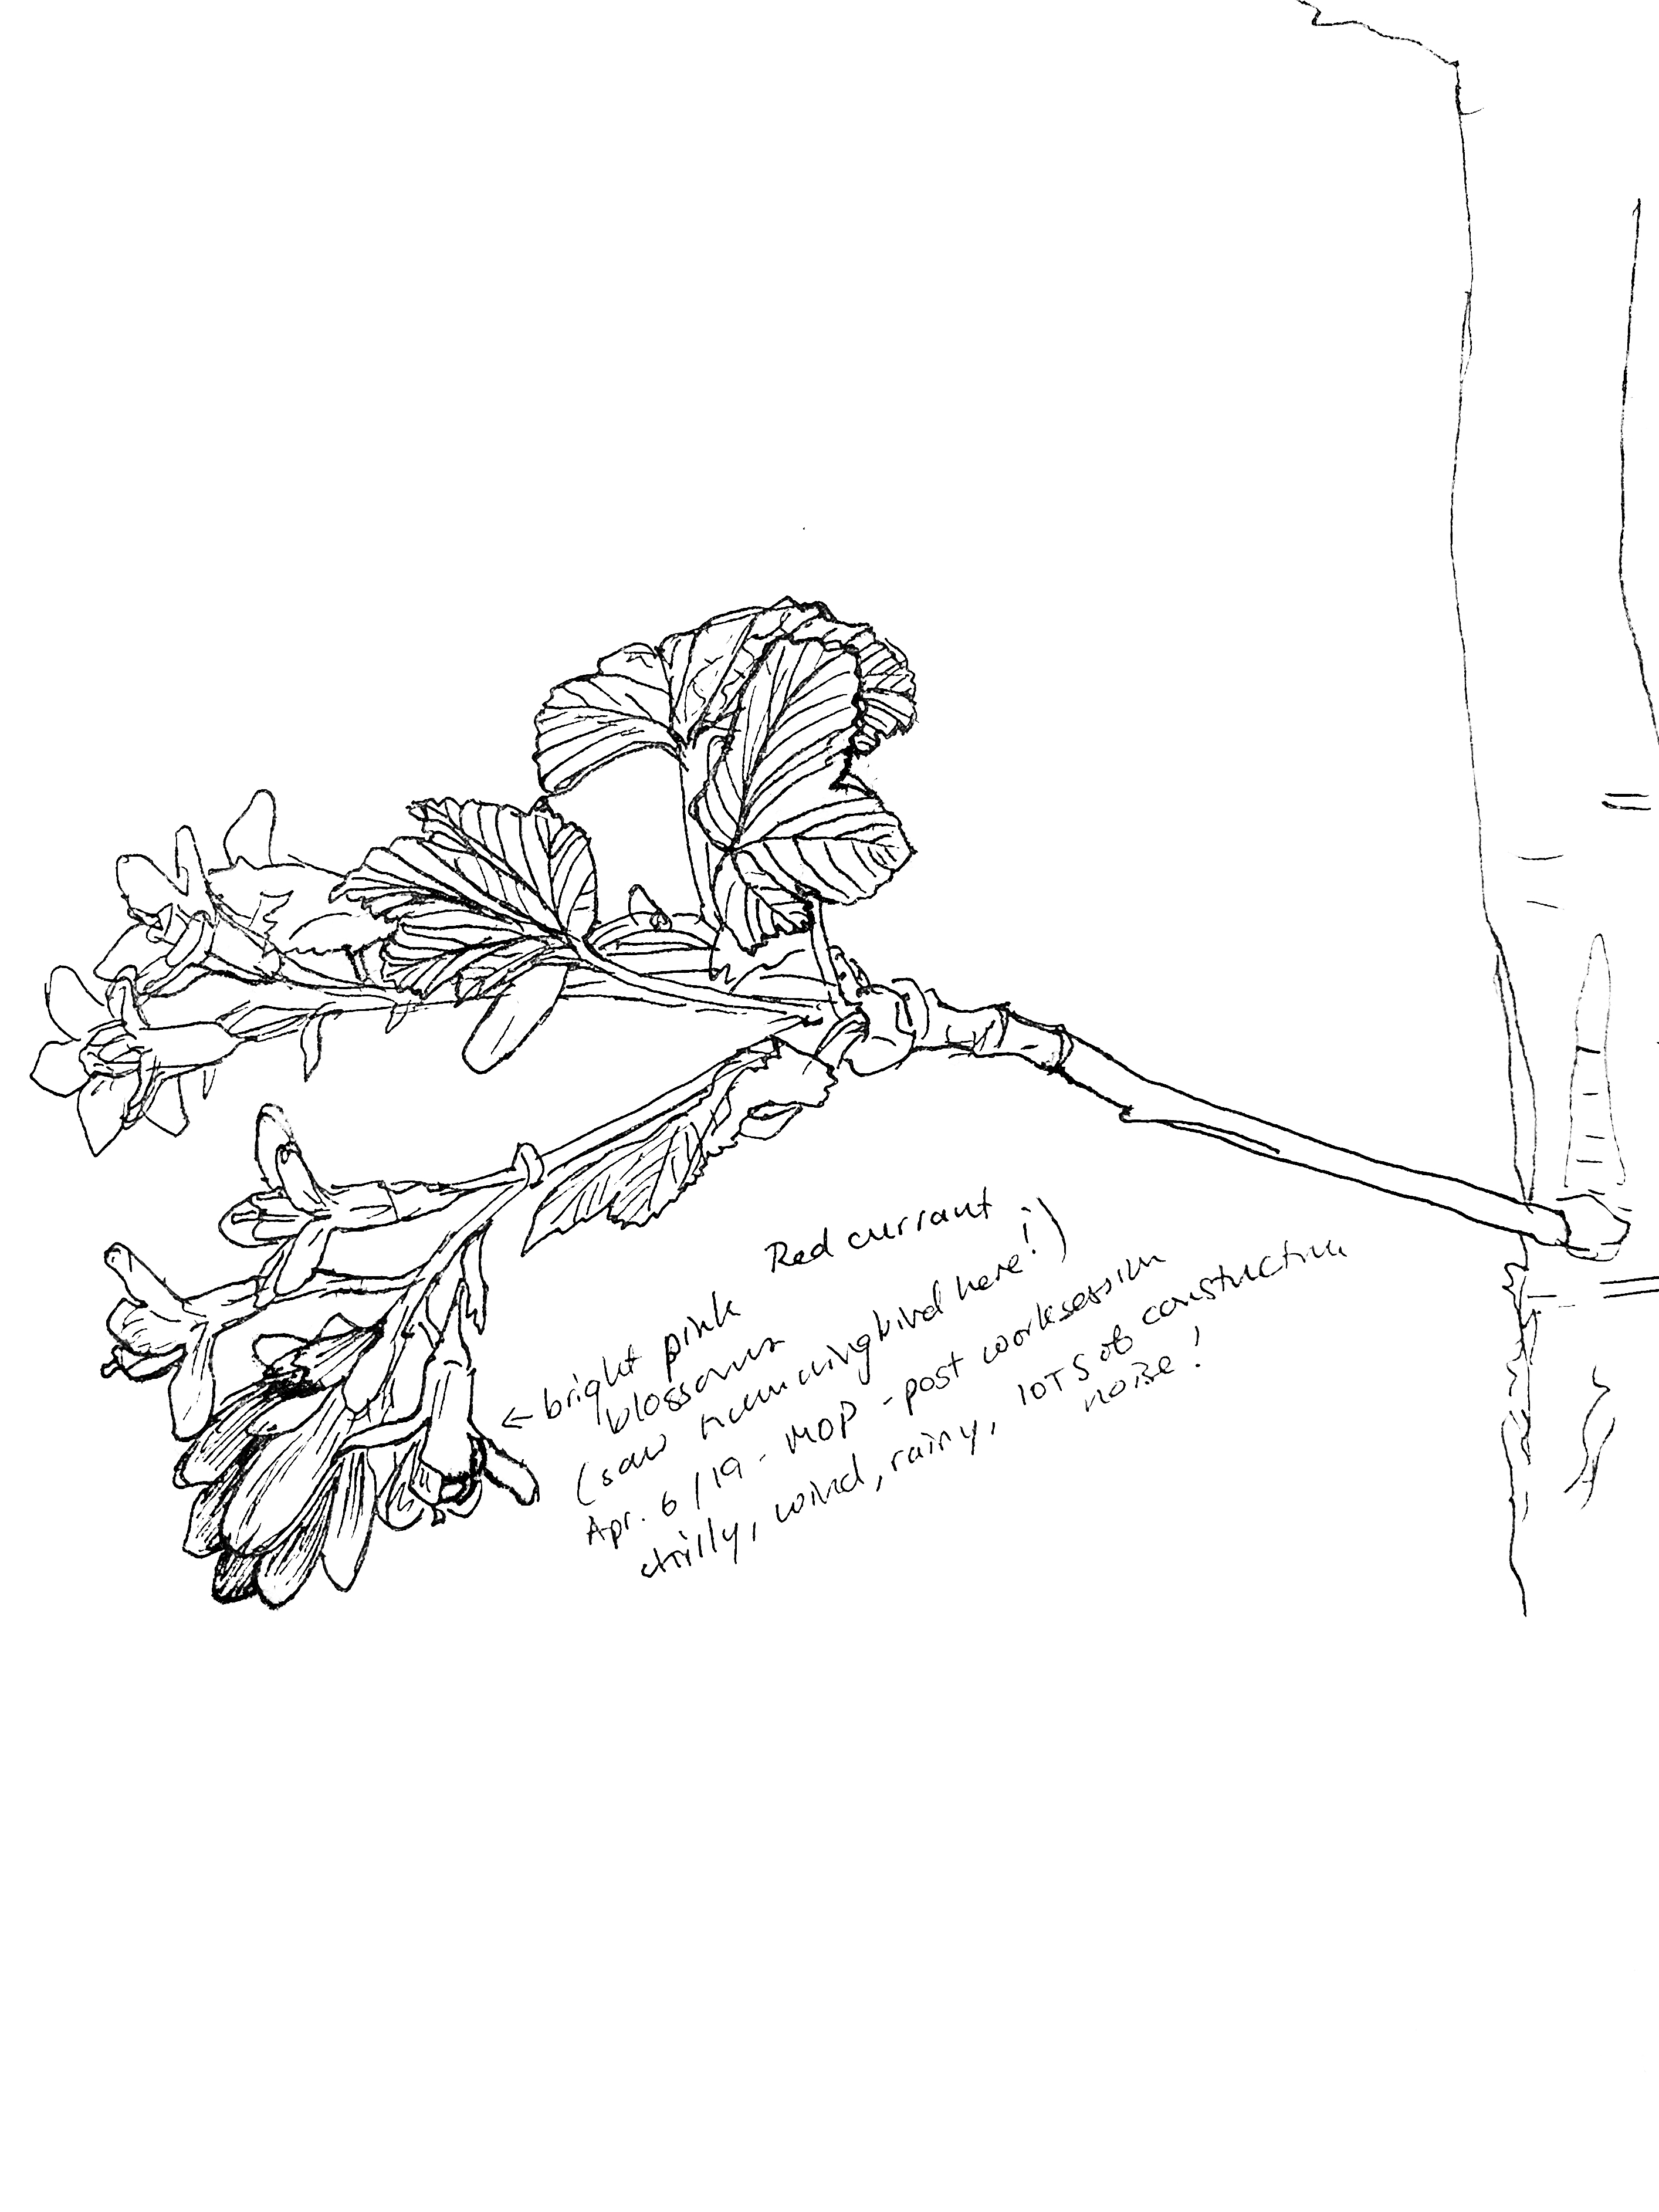 Red currant
← bright pink
blossoms
(saw hummingbird here!)
Apr. 6/19 - MOP - post worksession
chilly, wind, rainy, lOTS of construction
noise!